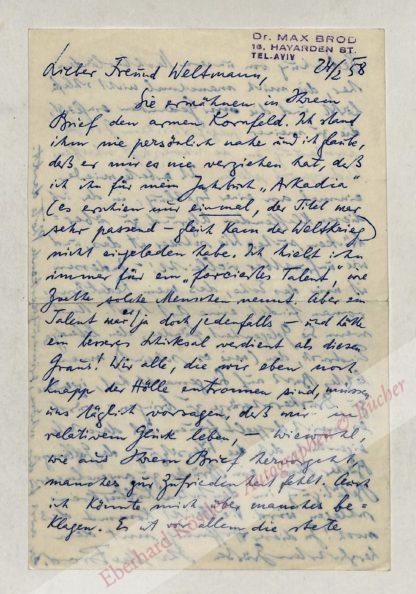 Dr. MAX BROD
16, HAYARDEN ST.
TEL-AVIV
24/I 58
Lieber Freund Weltmann,
Sie erwähnen in Ihrem
Brief den armen Kornfeld. Ich stand
ihm nie persönlich nahe und ich glaube,
daß er mir es nie verziehen hat, daß
ich ihn für mein Jahrbuch „Arkadia"
(es erschien nur einmal, der Titel war
sehr passend – gleich kam der Weltkrieg)
nicht eingeladen habe. Ich hielt ihn
immer für ein „forciertes Talent", wie
Goethe solche Menschen nennt. Aber ein
Talent war's ja doch jedenfalls – und hätte
ein besseres Schicksal verdient als dieses
Graus! Wir alle, die wir eben noch
knapp der Hölle entronnen sind, müssen
uns täglich vorsagen, daß wir in
relativem Glück leben, – wiewohl,
wie aus Ihrem Brief hervorgeht,
manches zur Zufriedenheit fehlt. Auch
ich könnte mich über manches be-
klagen. Es ist vor allem die stete
Eberhard Köstler Autographen & Bücher